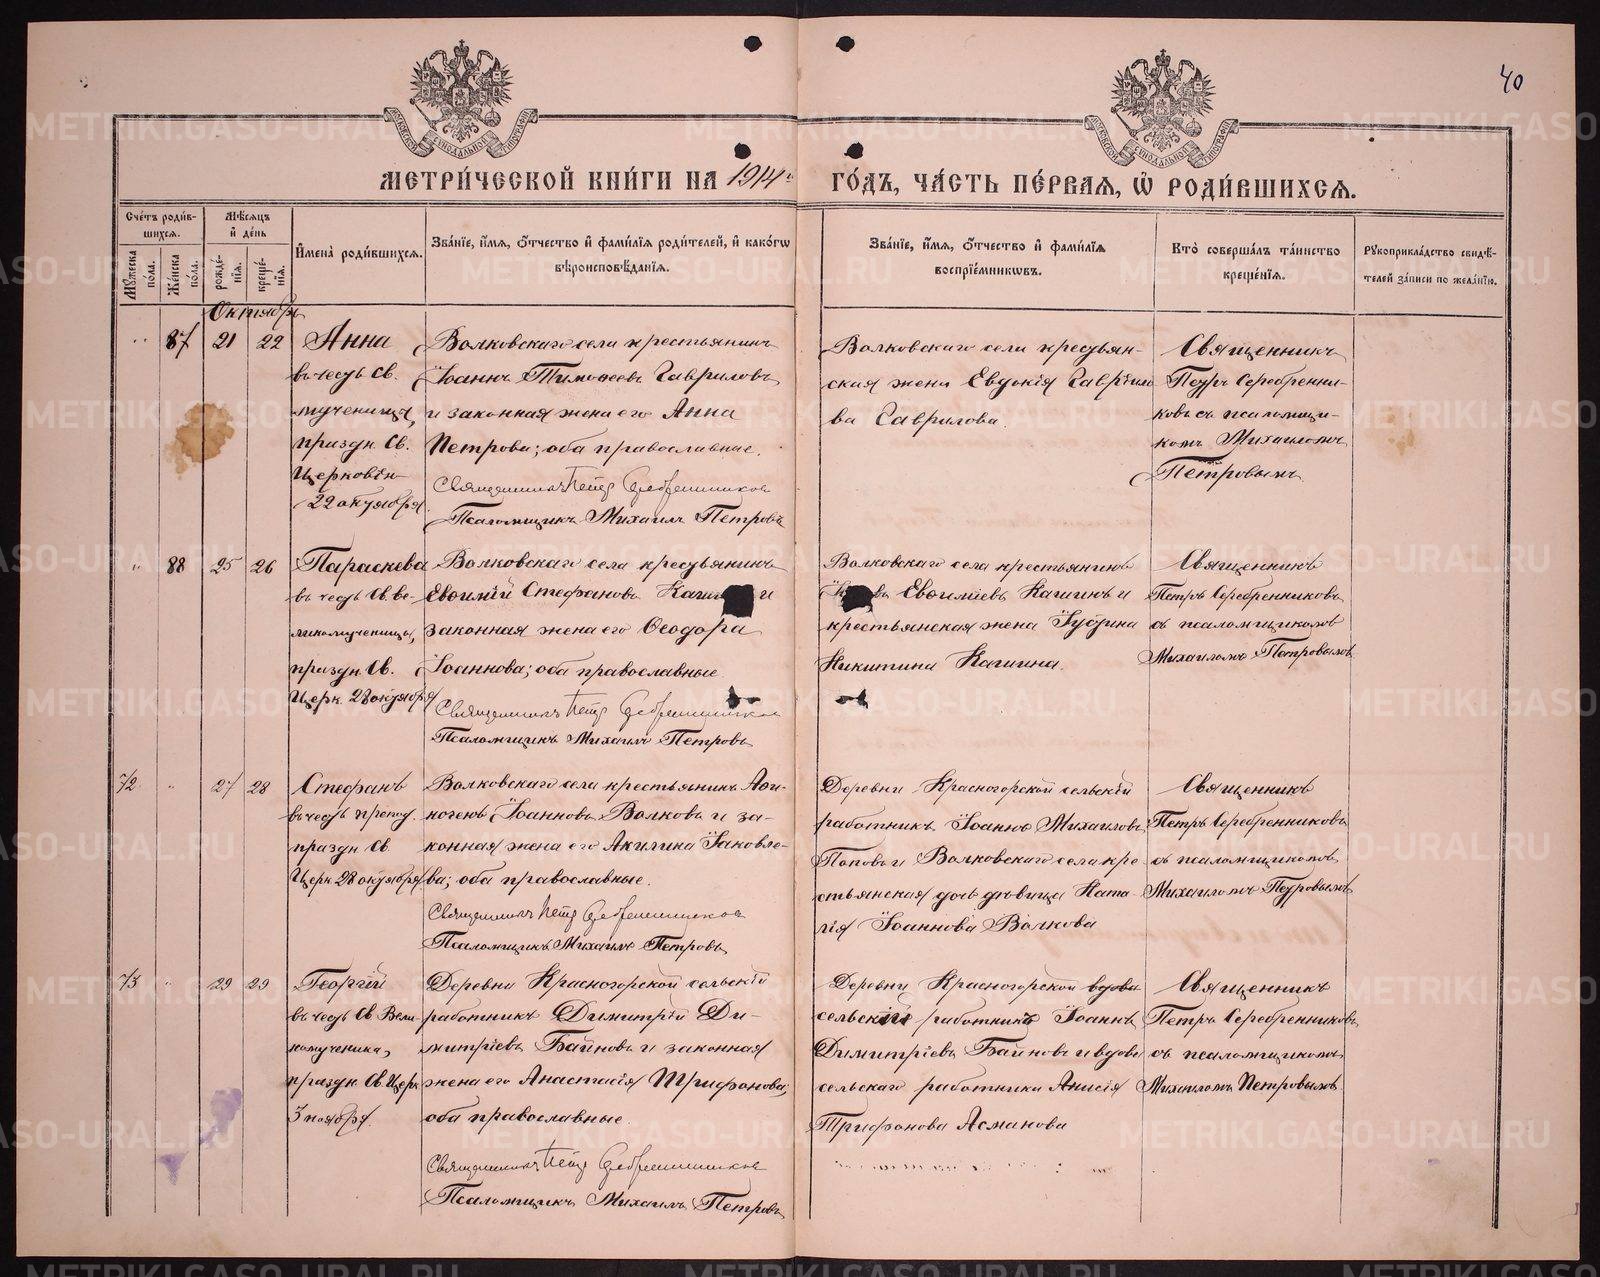 40
МОСКОВСКОЙ СѴНОДАЛЬНОЙ ТИПОГРАФІИ
МОСКОВСКОЙ СѴНОДАЛЬНОЙ ТИПОГРАФІИ
МЕТРИ́ЧЕСКОЙ КНИ́ГИ НА 1914й ГО́ДЪ, ЧА́СТЬ ПЕ́РВАЯ, Ѡ РОДИ́ВШИХСЯ.
Сче́тъ роди́в-
шихся.
Мꙋ́жеска по́ла.
Же́нска по́ла.
Мѣ́сяцъ
и҆ де́нь
рожде́-
нїя.
креще́-
нїя.
И҆мена̀ роди́вшихся.
Зва́нїе, и҆́мя, ѻ҆́тчество и҆ фами́лїя роди́телей, и҆ како́гѡ
вѣроисповѣ́данїя.
Зва́нїе, и҆́мя, ѻ҆́тчество и҆ фами́лїя
воспрїе́мникѡвъ.
Кто̀ соверша́лъ та́инство
креще́нїя.
Рꙋкоприкла́дство свидѣ́-
телей за́писи по жела́нїю.
Октябрь
87 21 22
Анна
въ честь св.
мученицы,
праздн. Св.
Церковію
22 октября
Волковскаго села крестьянинъ
Іоаннъ Тимоѳеевъ Гавриловъ
и законная жена его Анна
Петрова; оба православные.
Священникъ Петръ Серебренниковъ
Псаломщикъ Михаилъ Петровъ
Волковскаго села крестьян-
ская жена Евдокія Гаврило
ва Гаврилова.
Священникъ
Петръ Серебренни-
ковъ съ псаломщи-
комъ Михаиломъ
Петровымъ
88 25 26
Параскева
въ честь св. ве-
ликомученицы,
праздн. Св.
Церк. 28 октября
Волковскаго села крестьянинъ
Евѳимій Стефановъ и
законная жена его Ѳеодора
Іоаннова; оба православные
Священникъ Петръ Серебренниковъ
Псаломщикъ Михаилъ Петровъ
Волковскаго села крестьянинъ
Евѳиміевъ Кашинъ и
крестьянская жена
Никитина Кашина.
Священникъ
Петръ Серебренниковъ
съ псаломщикомъ
Михаиломъ Петровымъ
72 27 28
Стефанъ
въ честь препод.
праздн. Св.
Церк. 28 октября
Волковскаго села крестьянинъ Аѳи-
ногенъ Іоанновъ Волковъ и за-
конная жена его Акилина Іаковле-
ва; оба православные.
Священникъ Петръ Серебренниковъ
Псаломщикъ Михаилъ Петровъ
Деревни Красногорской сельскій
работникъ Іоаннъ Михаиловъ
Поповъ и Волковскаго села кре
стьянская дочь дѣвица Ната
лія Іоаннова Волкова
Священникъ
Петръ Серебренниковъ
съ псаломщикомъ
Михаиломъ Петровымъ
73 29 29
Георгій
въ честь Св. Вели-
комученика,
праздн. Св. Церк.
3 ноября.
Деревни Красногорской сельскій
работникъ Димитрій Ди-
митріевъ Баиновъ и законная
жена его Анастасія Трифонова;
оба православные.
Священникъ Петръ Серебренниковъ
Псаломщикъ Михаилъ Петровъ
Деревни Красногорской вдова
сельскій работникъ Іоаннъ
Димитріевъ Баиновъ и вдова
сельскаго работника Анисія
Трифонова Асманова
Священникъ
Петръ Серебренниковъ
съ псаломщикомъ
Михаиломъ Петровымъ
METRIKI.GASO-URAL.RU